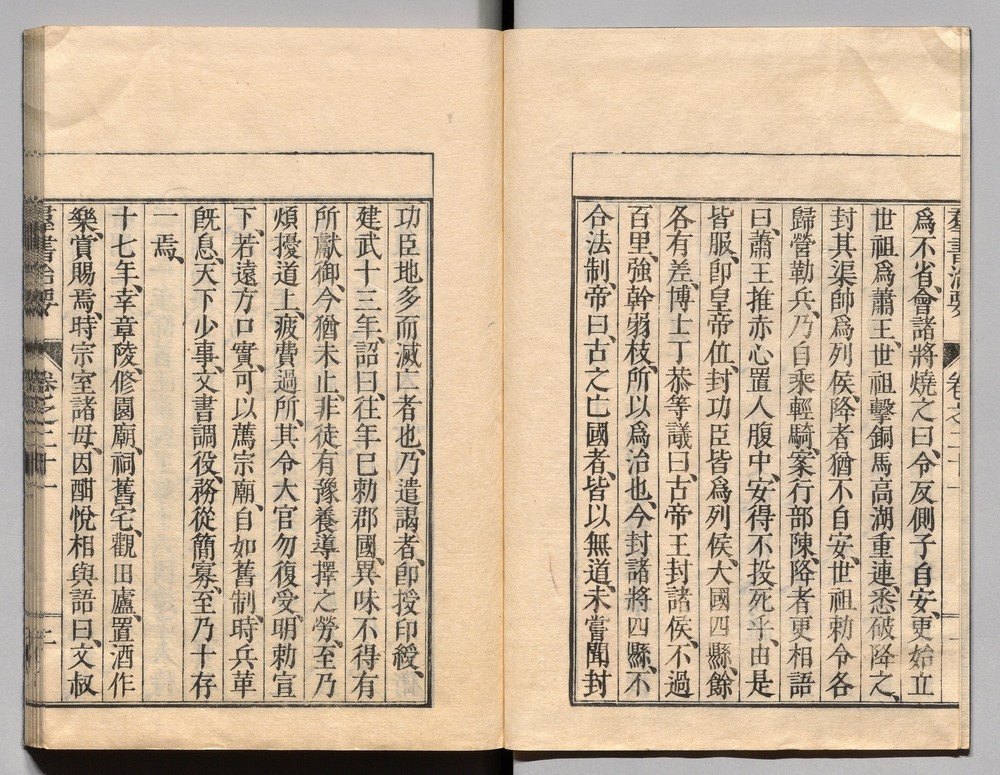 羣書治要 卷之二十一
爲不省、會諸將燒之曰、令反側子自安、更始立
世祖爲蕭王、世祖擊銅馬高湖重連、悉破降之、
封其渠帥爲列侯、降者猶不自安、世祖勅令各
歸營勒兵、乃自乘輕騎、案行部陳、降者更相語
曰、蕭王推赤心置人腹中、安得不投死乎、由是
皆服、卽皇帝位、封功臣皆爲列侯、大國四縣、餘
各有差、博士丁恭等議曰、古帝王封諸侯、不過
百里、強幹弱枝、所以爲治也、今封諸將四縣、不
合法制、帝曰、古之亡國者、皆以無道、未嘗聞封
功臣地多而滅亡者也、乃遣謁者、卽授印綬、
建武十三年、詔曰、往年已勅郡國、異味不得有
所獻御、今猶未止、非徒有豫養導擇之勞、至乃
煩擾道上、疲費過所、其令大官勿復受、明勅宣
下、若遠方口實、可以薦宗廟、自如舊制、時兵革
旣息、天下少事、文書調役、務從簡寡、至乃十存
一焉、
十七年、幸章陵、修園廟、祠舊宅、觀田廬、置酒作
樂、賞賜焉、時宗室諸母、因酣悅相與語曰、文叔
羣書治要 卷之二十一